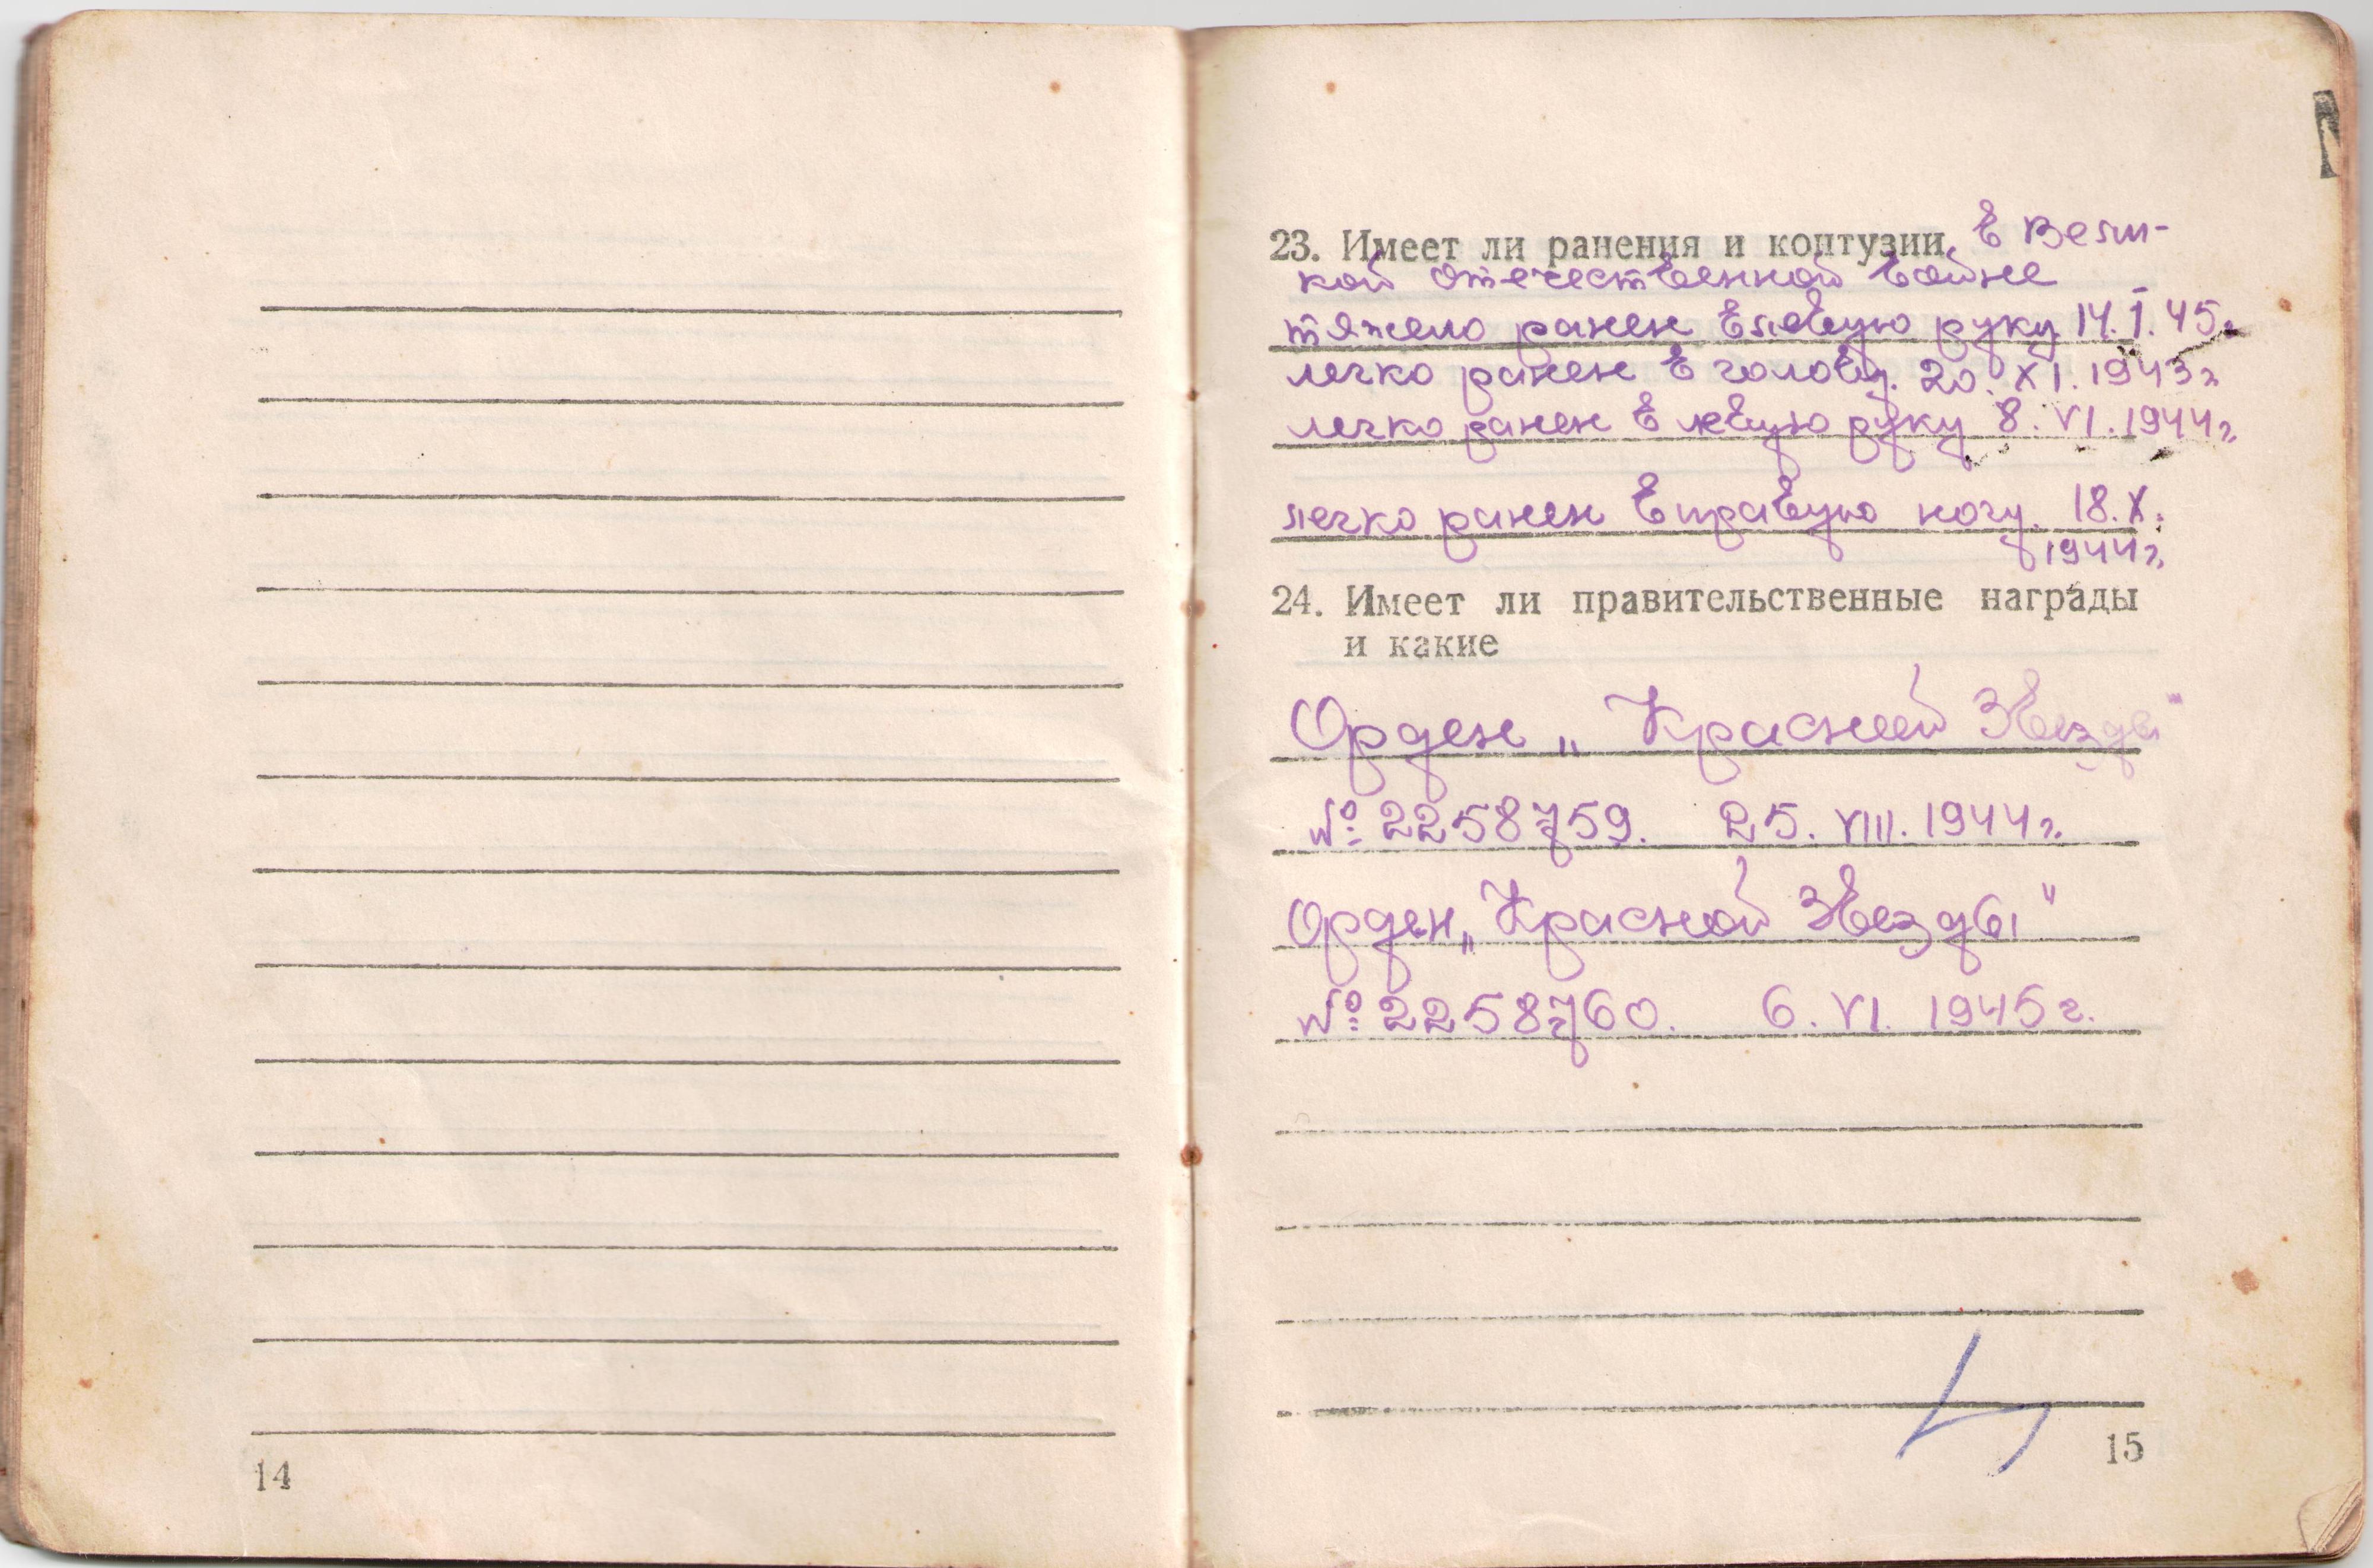 23. Имеет ли ранения и контузии в Вели-
кой отечественной войне
тяжело ранен в левую руку 14.I.45г.
легко ранен в голову. 20.XI.1943г
легко ранен в левую руку 8.VI.1944г.
легко ранен в правую ногу. 18.X.
1944г.
24. Имеет ли правительственные награды
и какие
Орден „Красной Звезды"
№ 2258759. 25.VIII.1944г.
Орден „Красной Звезды"
№ 2258760. 6.VI.1945г.
14
15